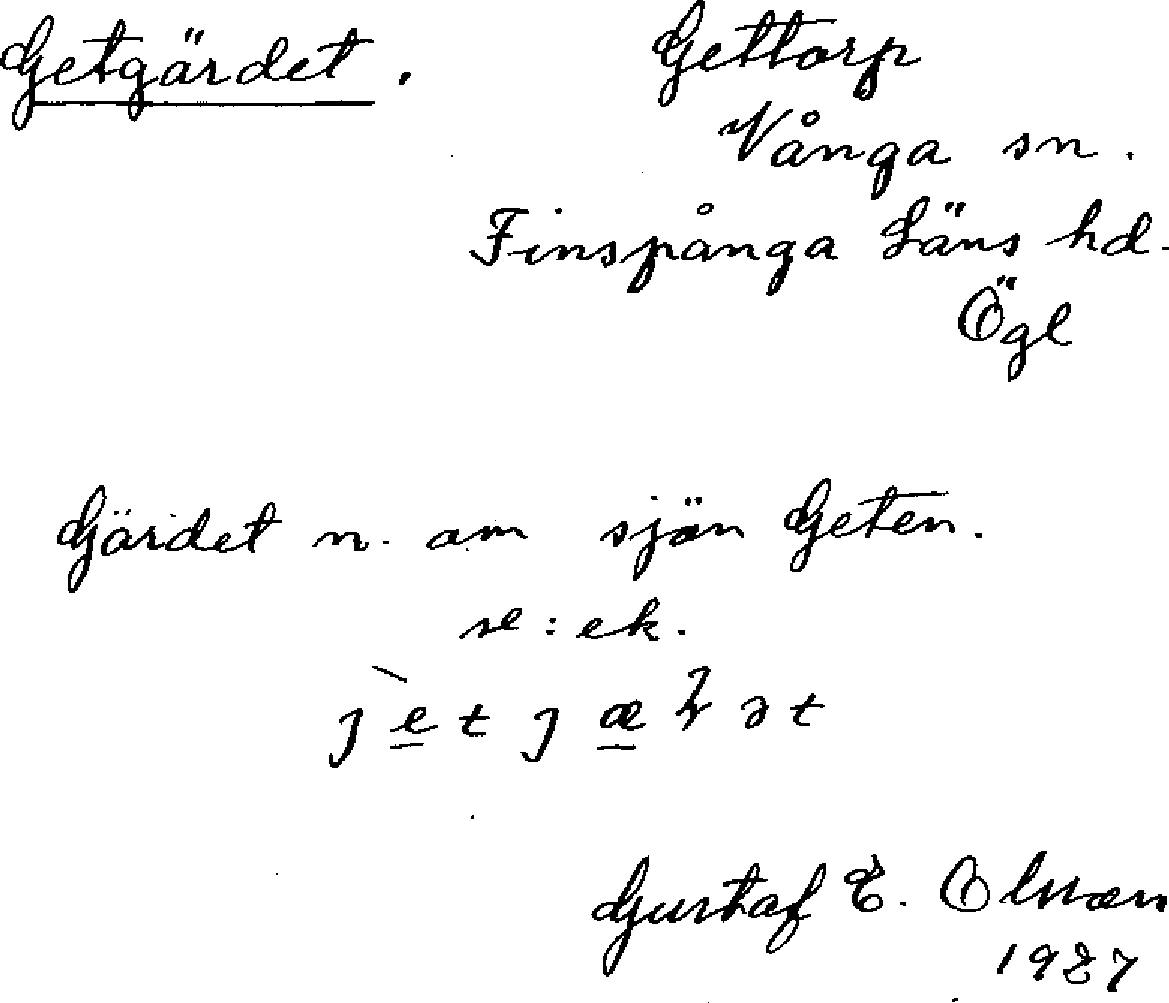 Getgärdet.
Gettorp
Vånga sn.
Finspånga Läns hd.
Ögl
Gärdet n. om sjön Geten.
se: ek.
j è t j æ ət
Gustaf E. Olsson
1927